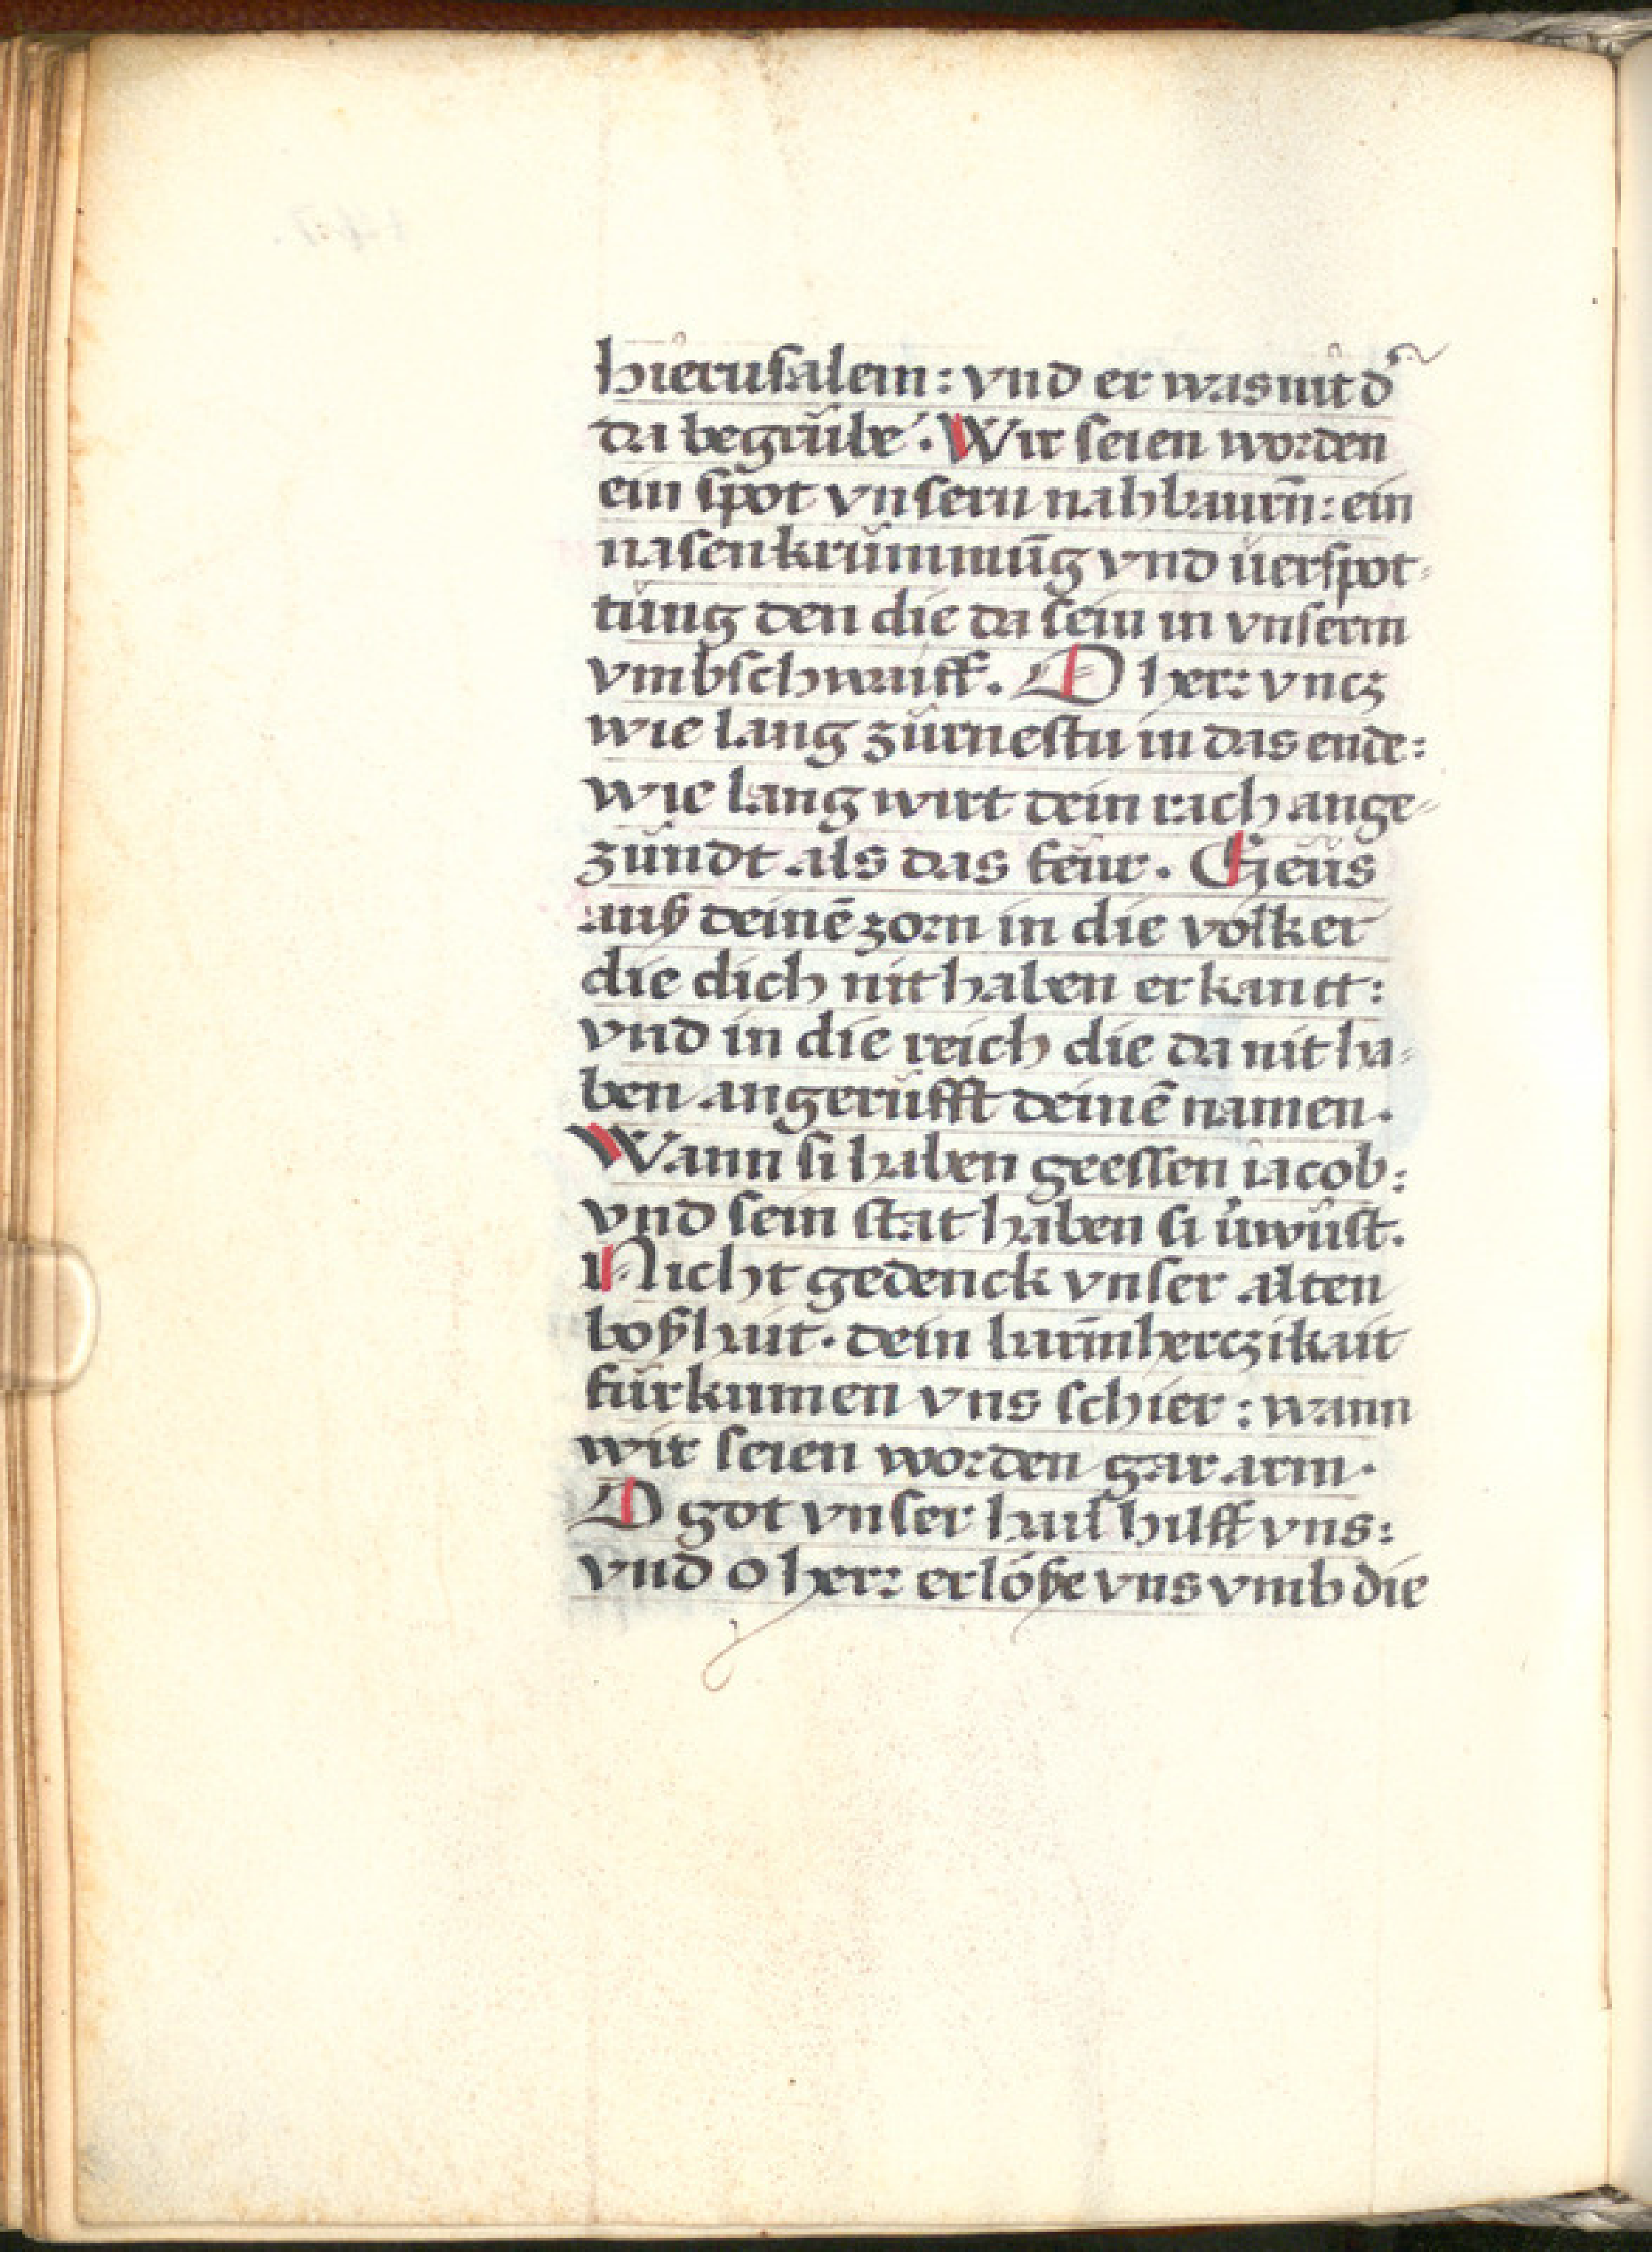 hierusalem: vnd er was nit d᷎
da begrůbe᷎. Wir seien worden
ein spot vnsern nahbaurn̄: ein
nasenkrŭmmūg vnd ŭerspot⸗
tŭng den die da sein in vnserm
vmbschwaiff. O herr vncz
wie lang zŭrnestu in das ende:
wie lang wirt dein rach ange⸗
zŭndt als das feŭr. Geŭs
auß deinē zorn in die völker
die dich nit haben erkantt:
vnd in die reich die da nit ha⸗
ben angerŭfft deinē namen.
Wann si haben geessen iacob:
vnd sein stat haben si ŭwŭst.
Nicht gedenck vnser alten
boßhait. dein barm̄herczikait
fŭrkumen vns schier: wann
wir seien worden gar arm.
O got vnser hail hilff vns:
vnd o herr erlöße vns vmb die